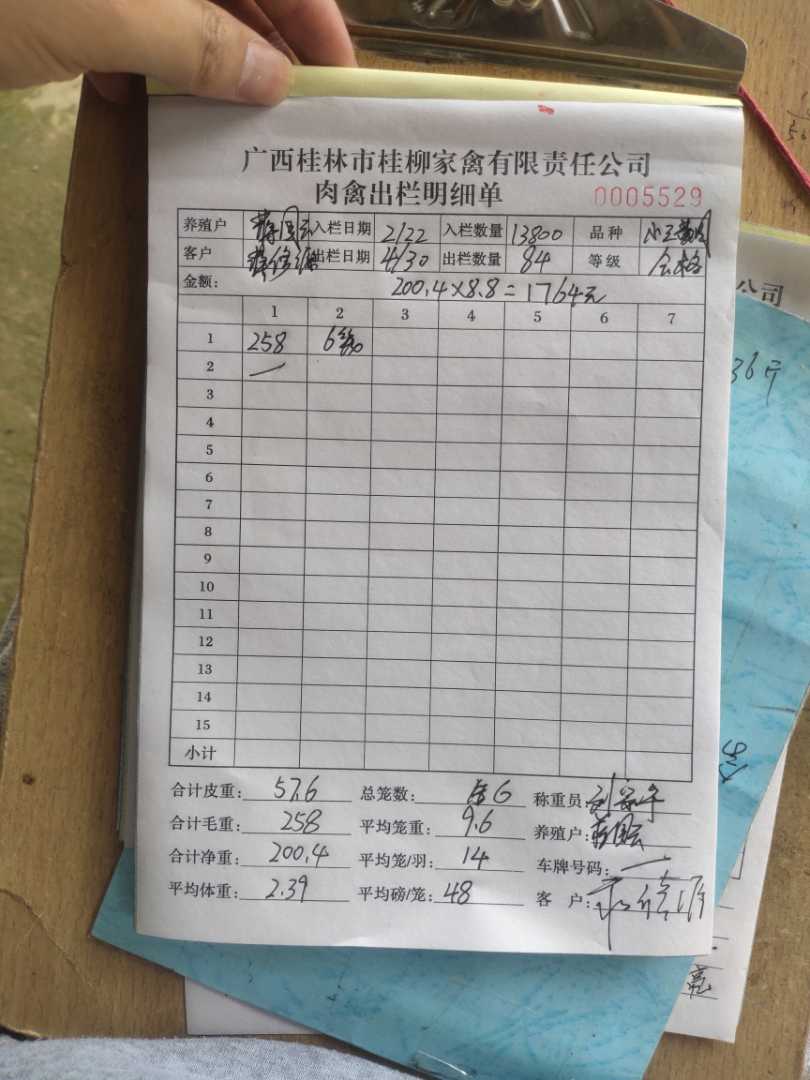 广西桂林市桂柳家禽有限责任公司
肉禽出栏明细单 0005529
养殖户 入栏日期 2/22 入栏数量 13800 品种
客户 出栏日期 4/30 出栏数量 84 等级 合格
金额: 200.4×8.8=1764元
1 2 3 4 5 6 7
1 258 6笼
2 一
3
4
5
6
7
8
9
10
11
12
13
14
15
小计
合计皮重: 57.6 总笼数: 6 称重员:
合计毛重: 258 平均笼重: 9.6 养殖户:
合计净重: 200.4 平均笼/羽: 14 车牌号码: 一
平均体重: 2.39 平均磅/笼: 48 客 户:
公司
36斤